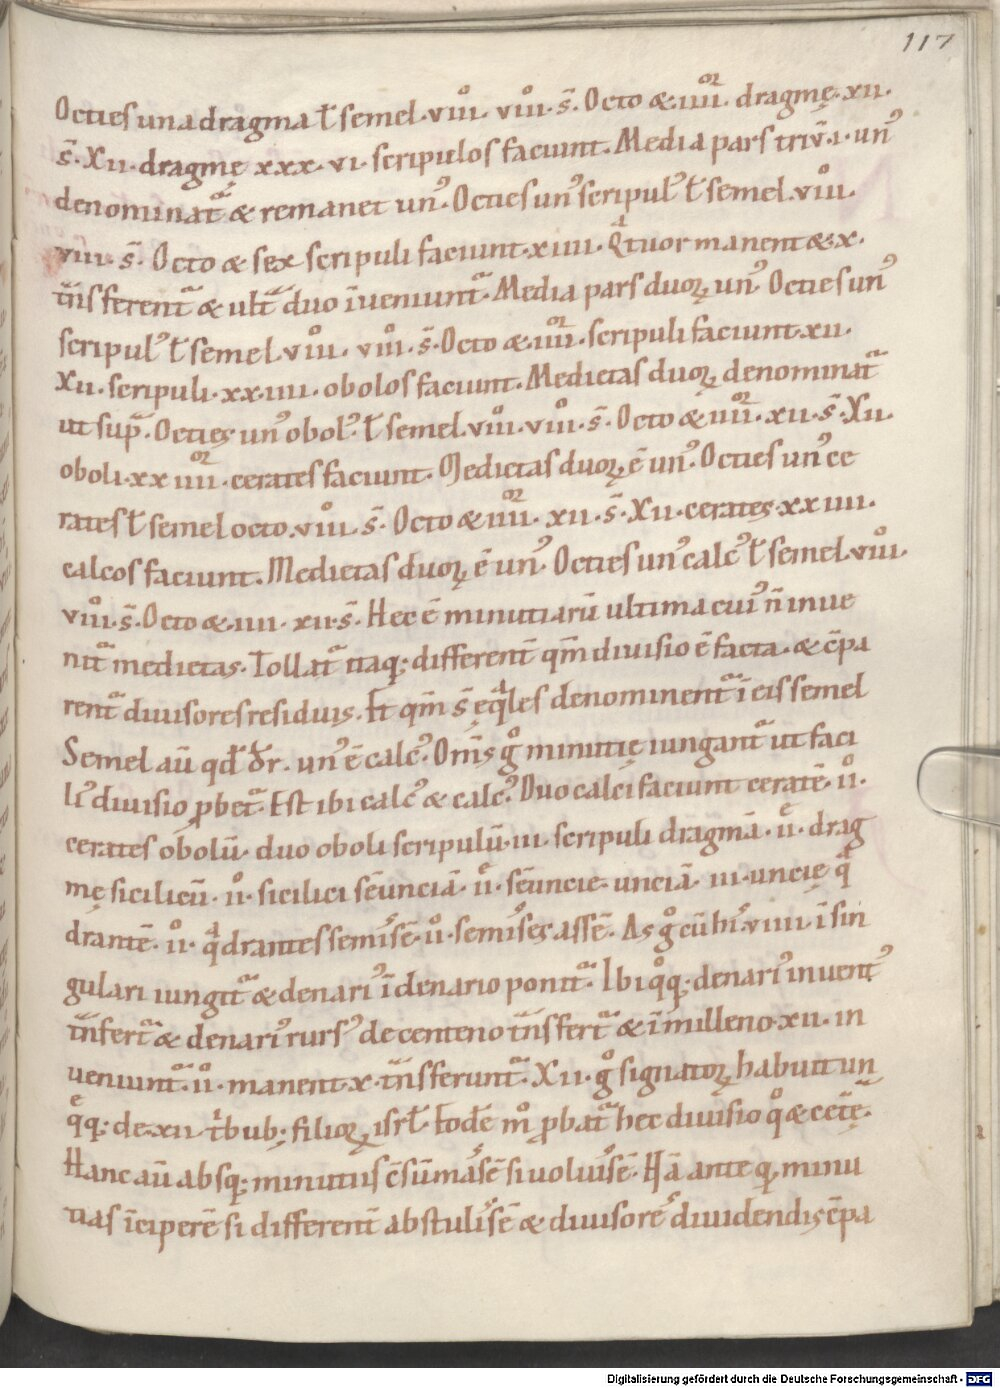 117
Octies una dragma ł semel · viiiº · viiiº · s̄ · Octo & iiiiºʳ · dragmę · xii ·
s̄ · Xii · dragmę xxx · vi · scripulos faciunt · Media pars triū · i · unꝰ
denominat᷑ & remanet unꝰ · Octies unꝰ scripulꝰ ł semel · viiiº ·
viii · s̄ · Octo & sex scripuli faciunt · xiiii · Qͣtuor manent & · x ·
t̄nsferent᷑ & ult᷑ duo īveniunt᷑ · Media pars duoꝝ unꝰ Octies unꝰ
scripulꝰ ł semel · viiiº · viiiº · s̄ · Octo & iiiiºʳ · scripuli faciunt · xii ·
Xii · scripuli · xx · iiii · obolos faciunt · Medietas duoꝝ denominat᷑
ut sup̄ · Octies unꝰ obolꝰ · ł semel · viiiº · viiiº · s̄ · Octo & iiiiºʳ · xii · s̄ · Xii ·
oboli · xx iiiiºʳ · cerates faciunt · Medietas duoꝝ ē unꝰ · Octies unꝰ ce
rates ł semel octo · viiiº · s̄ · Octo & iiiiºʳ · xii · s̄ · Xii · cerates · xx iiii ·
calcos faciunt · Medietas duoꝝ ē unꝰ · Octies unꝰ calcꝰ ł semel · viiiº ·
viiiº · s̄ · Octo & · iiii · xii · s̄ · Hec ē minutiarū ultima cuiꝰ n̄ inve
nit᷑ medietas · Tollat᷑ itaq; different̄ qm̄ divisio ē facta · & c̄pa
rent᷑ divisores residuis · Et qm̄ s̄ ęqͣles denominent᷑ ī eis semel
Semel aū qd̄ dr̄ · unꝰ ē calcꝰ · Om̄s gº minutię iungant᷑ ut faci
liꝰ divisio p̱bet᷑ · Est ibi calcꝰ & calcꝰ · Duo calci faciunt ceratē · iiº ·
cerates obolū · duo oboli scripulū · iii · scripuli dragmā · iiᵉ · drag
mę sicilicū · iiº · sicilici sēunciā · iiᵉ · sēuncie · unciā · iii · uncię qͣ
drantē · iiº · qͣdrantes semisˢē · iiº · semisˢes assē · As gº cū hisˢ · viiii · ī sin
gulari iungit᷑ & denariꝰ ī denario ponit᷑ · Ibi qºq; denariꝰ inventꝰ
t̄nsfert᷑ & denariꝰ rursꝰ de centeno t̄nsfert᷑ & ī milleno · xii · in
veniunt᷑ · iiº · manent · x · t̄nsferunt᷑ · Xii · gº signatoꝝ habuit un
qᵉq; de · xii · tⁱbub; filioꝝ isrł · Eodē mº p̱bat᷑ hec divisio qº & cetę ·
Hanc aū absq; minutiis c̄sūmasˢē si voluisˢē · Hā ante q̱ minu
tias īciperē si different̄ abstulisˢē & divisoresˢ dividendis c̄pa
Digitalisierung gefördert durch die Deutsche Forschungsgemeinschaft · DFG